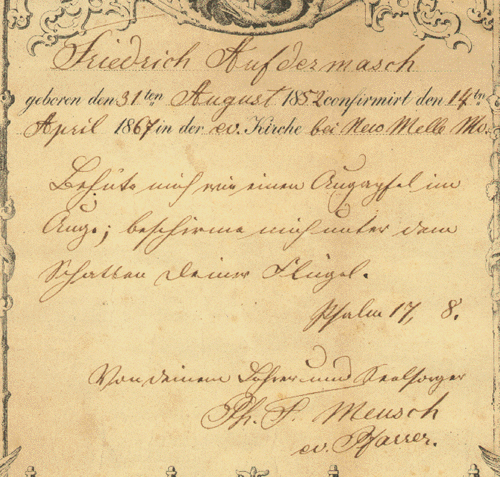 Friedrich Aufdermasch
geboren den 31ten August 1852 confirmirt den 14ten
April 1867 in der ev. Kirche bei New Melle Mo.
Behüte mich wie einen Augapfel im
Auge; beschirme mich unter dem
Schatten Deiner Flügel.
Psalm 17, 8.
Von deinem Lehrer und Seelsorger
Ph. F. Meusch
ev. Pfarrer.